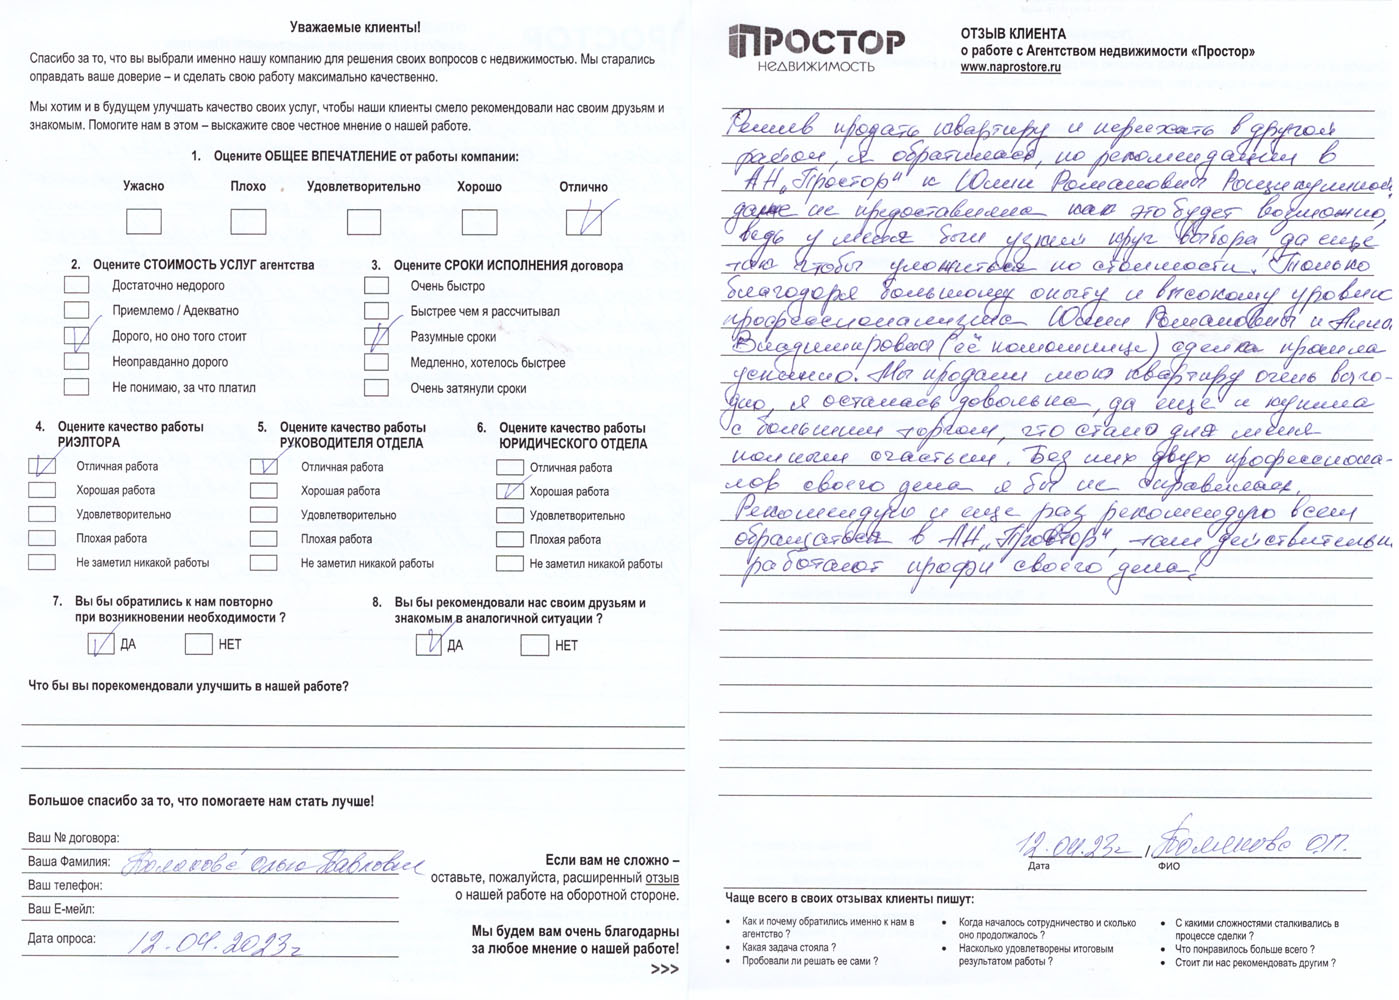 Уважаемые клиенты!
Спасибо за то, что вы выбрали именно нашу компанию для решения своих вопросов с недвижимостью. Мы старались
оправдать ваше доверие – и сделать свою работу максимально качественно.
Мы хотим и в будущем улучшать качество своих услуг, чтобы наши клиенты смело рекомендовали нас своим друзьям и
знакомым. Помогите нам в этом – выскажите свое честное мнение о нашей работе.
1. Оцените ОБЩЕЕ ВПЕЧАТЛЕНИЕ от работы компании:
Ужасно Плохо Удовлетворительно Хорошо Отлично
2. Оцените СТОИМОСТЬ УСЛУГ агентства
Достаточно недорого
Приемлемо / Адекватно
Дорого, но оно того стоит
Неоправданно дорого
Не понимаю, за что платил
3. Оцените СРОКИ ИСПОЛНЕНИЯ договора
Очень быстро
Быстрее чем я рассчитывал
Разумные сроки
Медленно, хотелось быстрее
Очень затянули сроки
4. Оцените качество работы
РИЭЛТОРА
Отличная работа
Хорошая работа
Удовлетворительно
Плохая работа
Не заметил никакой работы
5. Оцените качество работы
РУКОВОДИТЕЛЯ ОТДЕЛА
Отличная работа
Хорошая работа
Удовлетворительно
Плохая работа
Не заметил никакой работы
6. Оцените качество работы
ЮРИДИЧЕСКОГО ОТДЕЛА
Отличная работа
Хорошая работа
Удовлетворительно
Плохая работа
Не заметил никакой работы
7. Вы бы обратились к нам повторно
при возникновении необходимости ?
ДА НЕТ
8. Вы бы рекомендовали нас своим друзьям и
знакомым в аналогичной ситуации ?
ДА НЕТ
Что бы вы порекомендовали улучшить в нашей работе?
Большое спасибо за то, что помогаете нам стать лучше!
Ваш № договора:
Ваша Фамилия: Ольга Павловна
Ваш телефон:
Ваш Е-мейл:
Дата опроса: 12.04.2023г
Если вам не сложно –
оставьте, пожалуйста, расширенный отзыв
о нашей работе на оборотной стороне.
Мы будем вам очень благодарны
за любое мнение о нашей работе!
>>>
ПРОСТОР
НЕДВИЖИМОСТЬ
ОТЗЫВ КЛИЕНТА
о работе с Агентством недвижимости «Простор»
www.naprostore.ru
Решив продать квартиру и переехать в другой
район, я обратилась, по рекомендации в
АН „Простор“ к Юлии Романовны
даже не предоставляла как это будет возможно,
ведь у меня был узкий круг выбора, да еще
так чтобы уложиться по стоимости. Только
благодаря большому опыту и высокому уровню
профессионализма Юлии Романовны и Анны
Владимировны (её помощнице) сделка прошла
успешно. Мы продали мою квартиру очень выго-
дно, я осталась довольна, да еще и купила
с большим торгом, что стало для меня
полным счастьем. Без них двух профессиона-
лов своего дела я бы не справилась.
Рекомендую и еще раз рекомендую всем
обращаться в АН „Простор“, там действительно
работают профи своего дела!
12.04.23г / Полякова О.П.
Дата ФИО
Чаще всего в своих отзывах клиенты пишут:
• Как и почему обратились именно к нам в
агентство ?
• Какая задача стояла ?
• Пробовали ли решать ее сами ?
• Когда началось сотрудничество и сколько
оно продолжалось ?
• Насколько удовлетворены итоговым
результатом работы ?
• С какими сложностями сталкивались в
процессе сделки ?
• Что понравилось больше всего ?
• Стоит ли нас рекомендовать другим ?